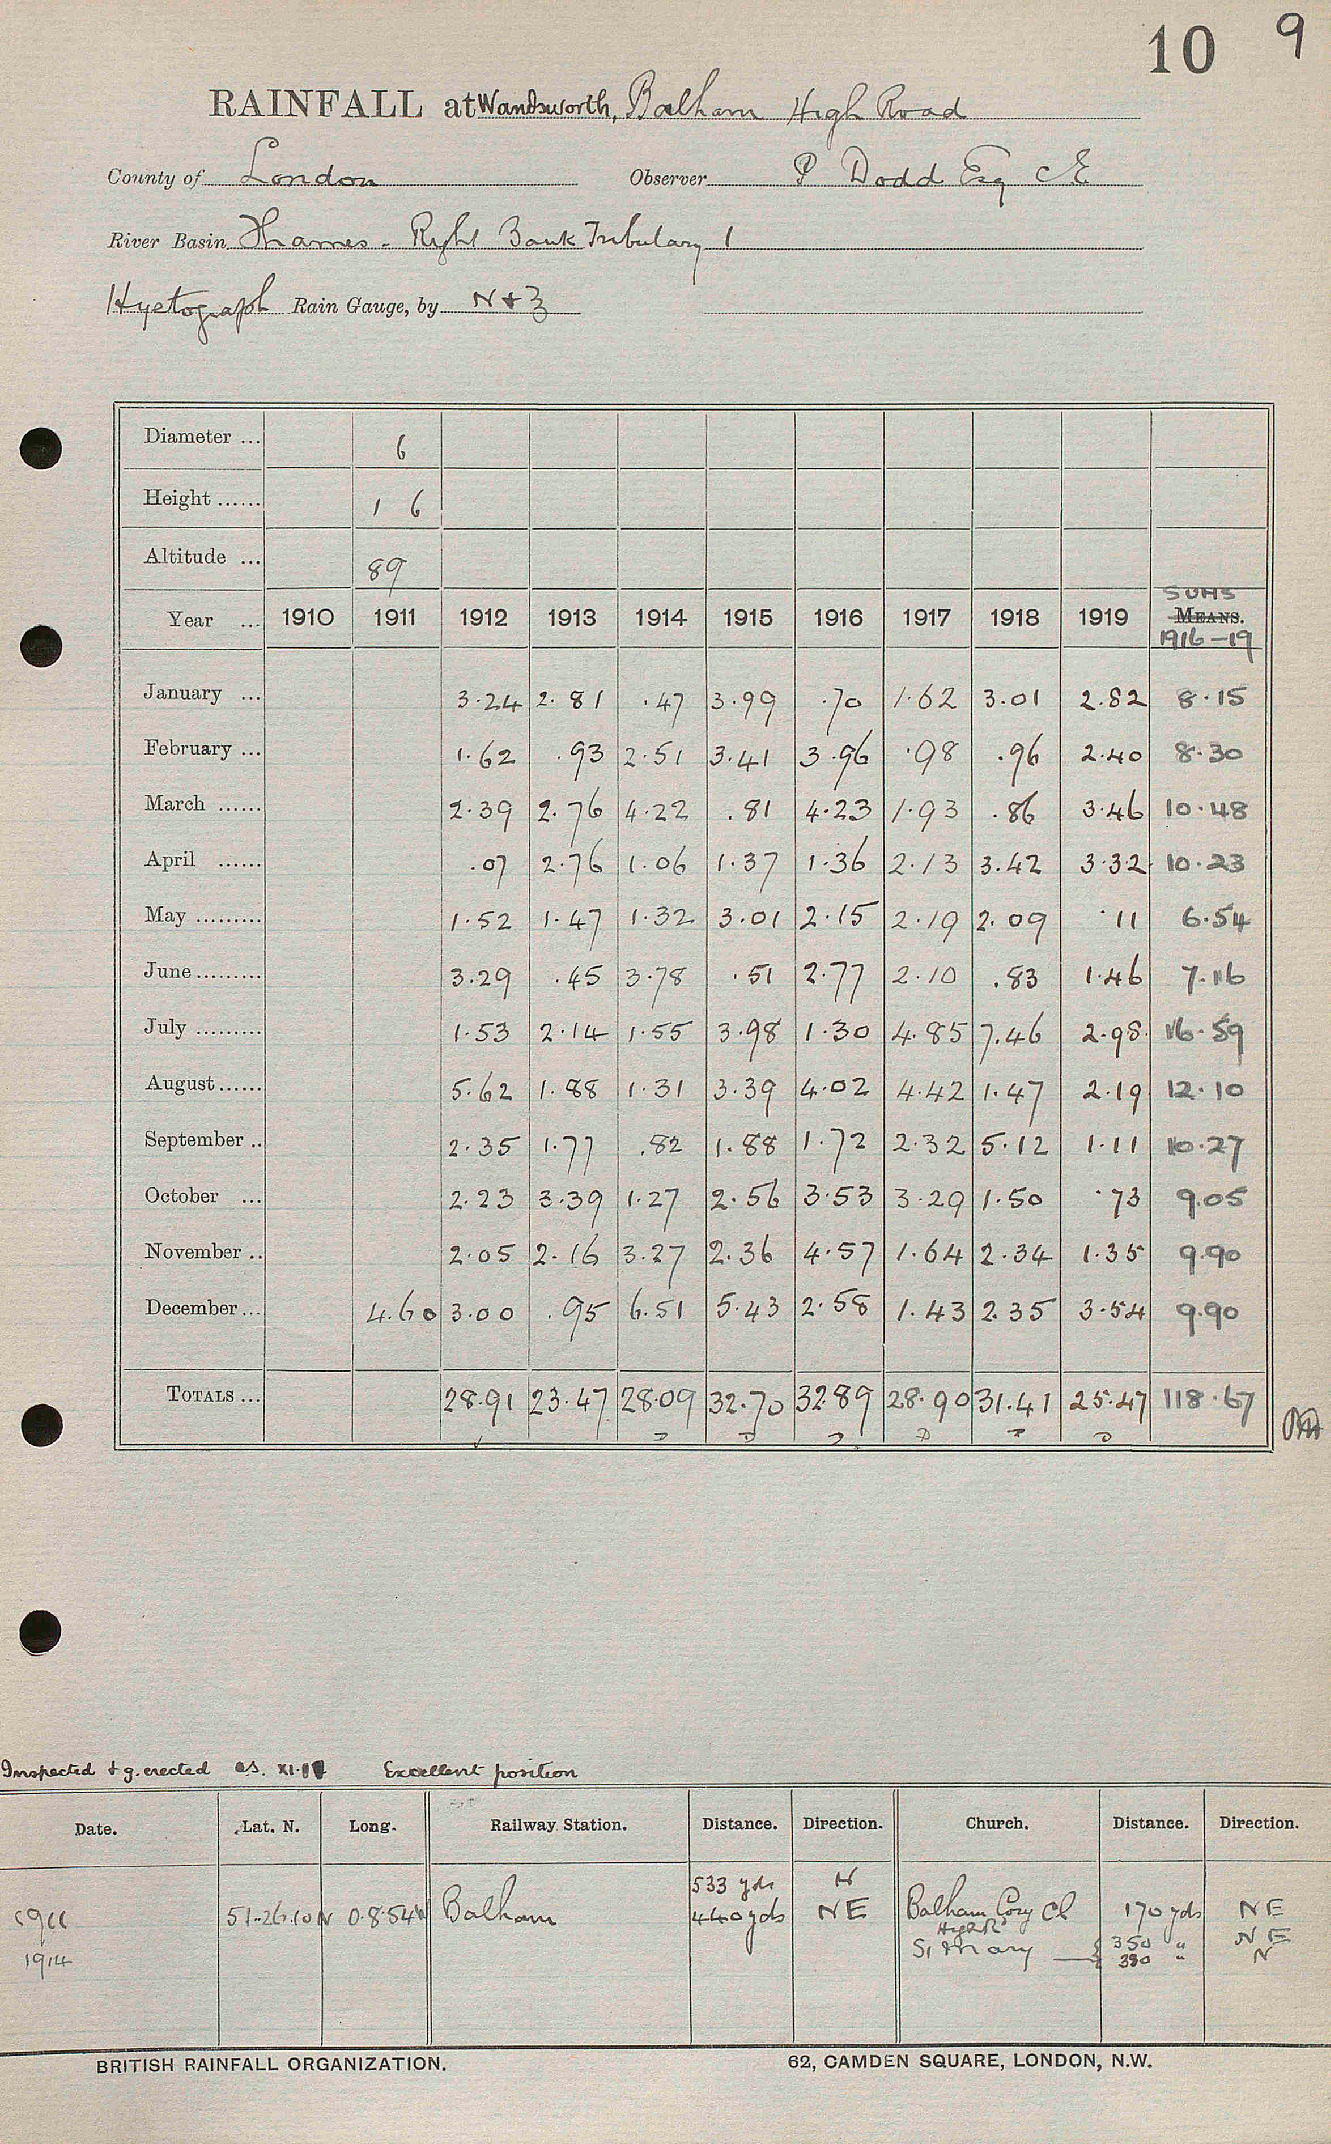 10 9
RAINFALL at Wandsworth, Balham High Road
County of London Observer P Dodd Esq C E
River Basin Thames - Right Bank Tributary 1
Hyetograph Rain Gauge, by N & Z
Diameter ... 6
Height ...... 1 6
Altitude ... 89
SUMS
Year ... 1910 1911 1912 1913 1914 1915 1916 1917 1918 1919 MEANS.
1916-19
January ... 3.24 2.81 .47 3.99 .70 1.62 3.01 2.82 8.15
February ... 1.62 .93 2.51 3.41 3.96 .98 .96 2.40 8.30
March ...... 2.39 2.76 4.22 .81 4.23 1.93 .86 3.46 10.48
April ...... .07 2.76 1.06 1.37 1.36 2.13 3.42 3.32 10.23
May ......... 1.52 1.47 1.32 3.01 2.15 2.19 2.09 .11 6.54
June ......... 3.29 .45 3.78 .51 2.77 2.10 .83 1.46 7.16
July ......... 1.53 2.14 1.55 3.98 1.30 4.85 7.46 2.98 16.59
August ...... 5.62 1.88 1.31 3.39 4.02 4.42 1.47 2.19 12.10
September .. 2.35 1.77 .82 1.88 1.72 2.32 5.12 1.11 10.27
October ... 2.23 3.39 1.27 2.56 3.53 3.29 1.50 .73 9.05
November .. 2.05 2.16 3.27 2.36 4.57 1.64 2.34 1.35 9.90
December ... 4.60 3.00 .95 6.51 5.43 2.58 1.43 2.35 3.54 9.90
TOTALS ... 28.91 23.47 28.09 32.70 32.89 28.90 31.41 25.47 118.67
Inspected & g. erected XI. Excellent position
Date. Lat. N. Long. Railway Station. Distance. Direction. Church. Distance. Direction.
533 yds N
1911 51.26.10 N 0.8.54 W Balham 440 yds NE Balham Cong Ch 170 yds NE
High Rd
St Mary 350 " NE
1914 330 " N
BRITISH RAINFALL ORGANIZATION. 62, CAMDEN SQUARE, LONDON, N.W.